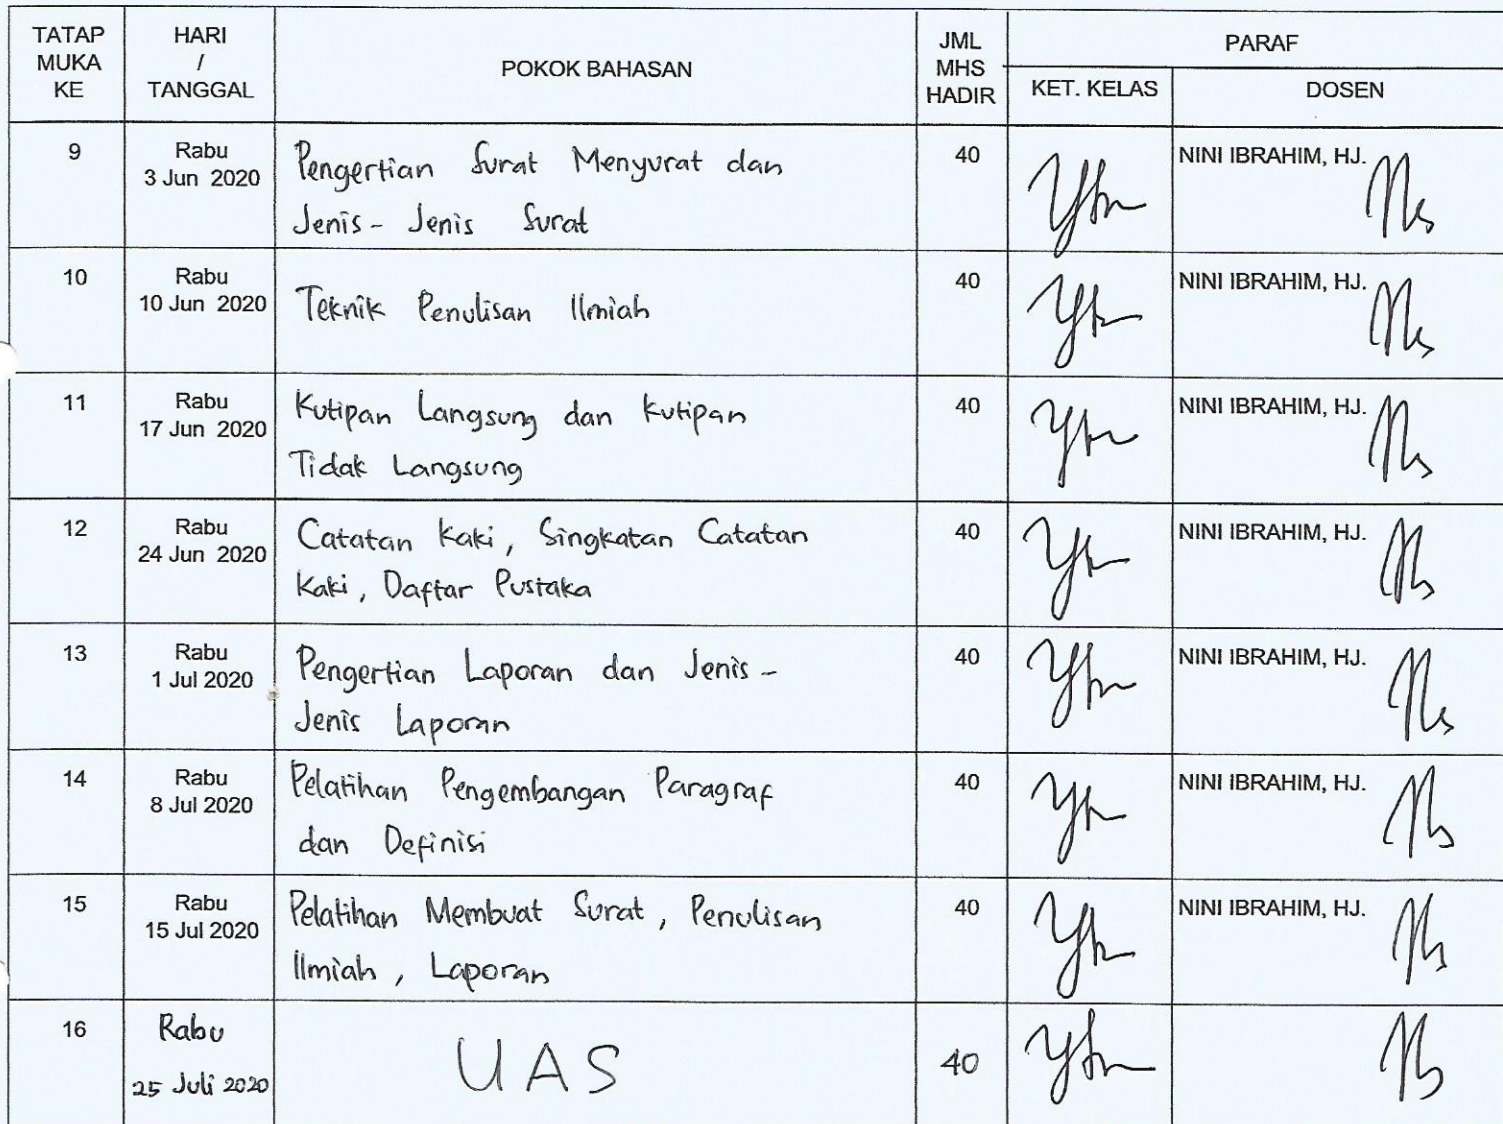 TATAP
MUKA
KE
HARI
/
TANGGAL
POKOK BAHASAN
JML
MHS
HADIR
PARAF
KET. KELAS
DOSEN
9
Rabu
3 Jun 2020
Pengertian Surat Menyurat dan
Jenis - Jenis Surat
40
NINI IBRAHIM, HJ.
10
Rabu
10 Jun 2020
Teknik Penulisan Ilmiah
40
NINI IBRAHIM, HJ.
11
Rabu
17 Jun 2020
Kutipan Langsung dan Kutipan
Tidak Langsung
40
NINI IBRAHIM, HJ.
12
Rabu
24 Jun 2020
Catatan Kaki, Singkatan Catatan
Kaki, Daftar Pustaka
40
NINI IBRAHIM, HJ.
13
Rabu
1 Jul 2020
Pengertian Laporan dan Jenis -
Jenis Laporan
40
NINI IBRAHIM, HJ.
14
Rabu
8 Jul 2020
Pelatihan Pengembangan Paragraf
dan Definisi
40
NINI IBRAHIM, HJ.
15
Rabu
15 Jul 2020
Pelatihan Membuat Surat, Penulisan
Ilmiah, Laporan
40
NINI IBRAHIM, HJ.
16
Rabu
25 Juli 2020
UAS
40